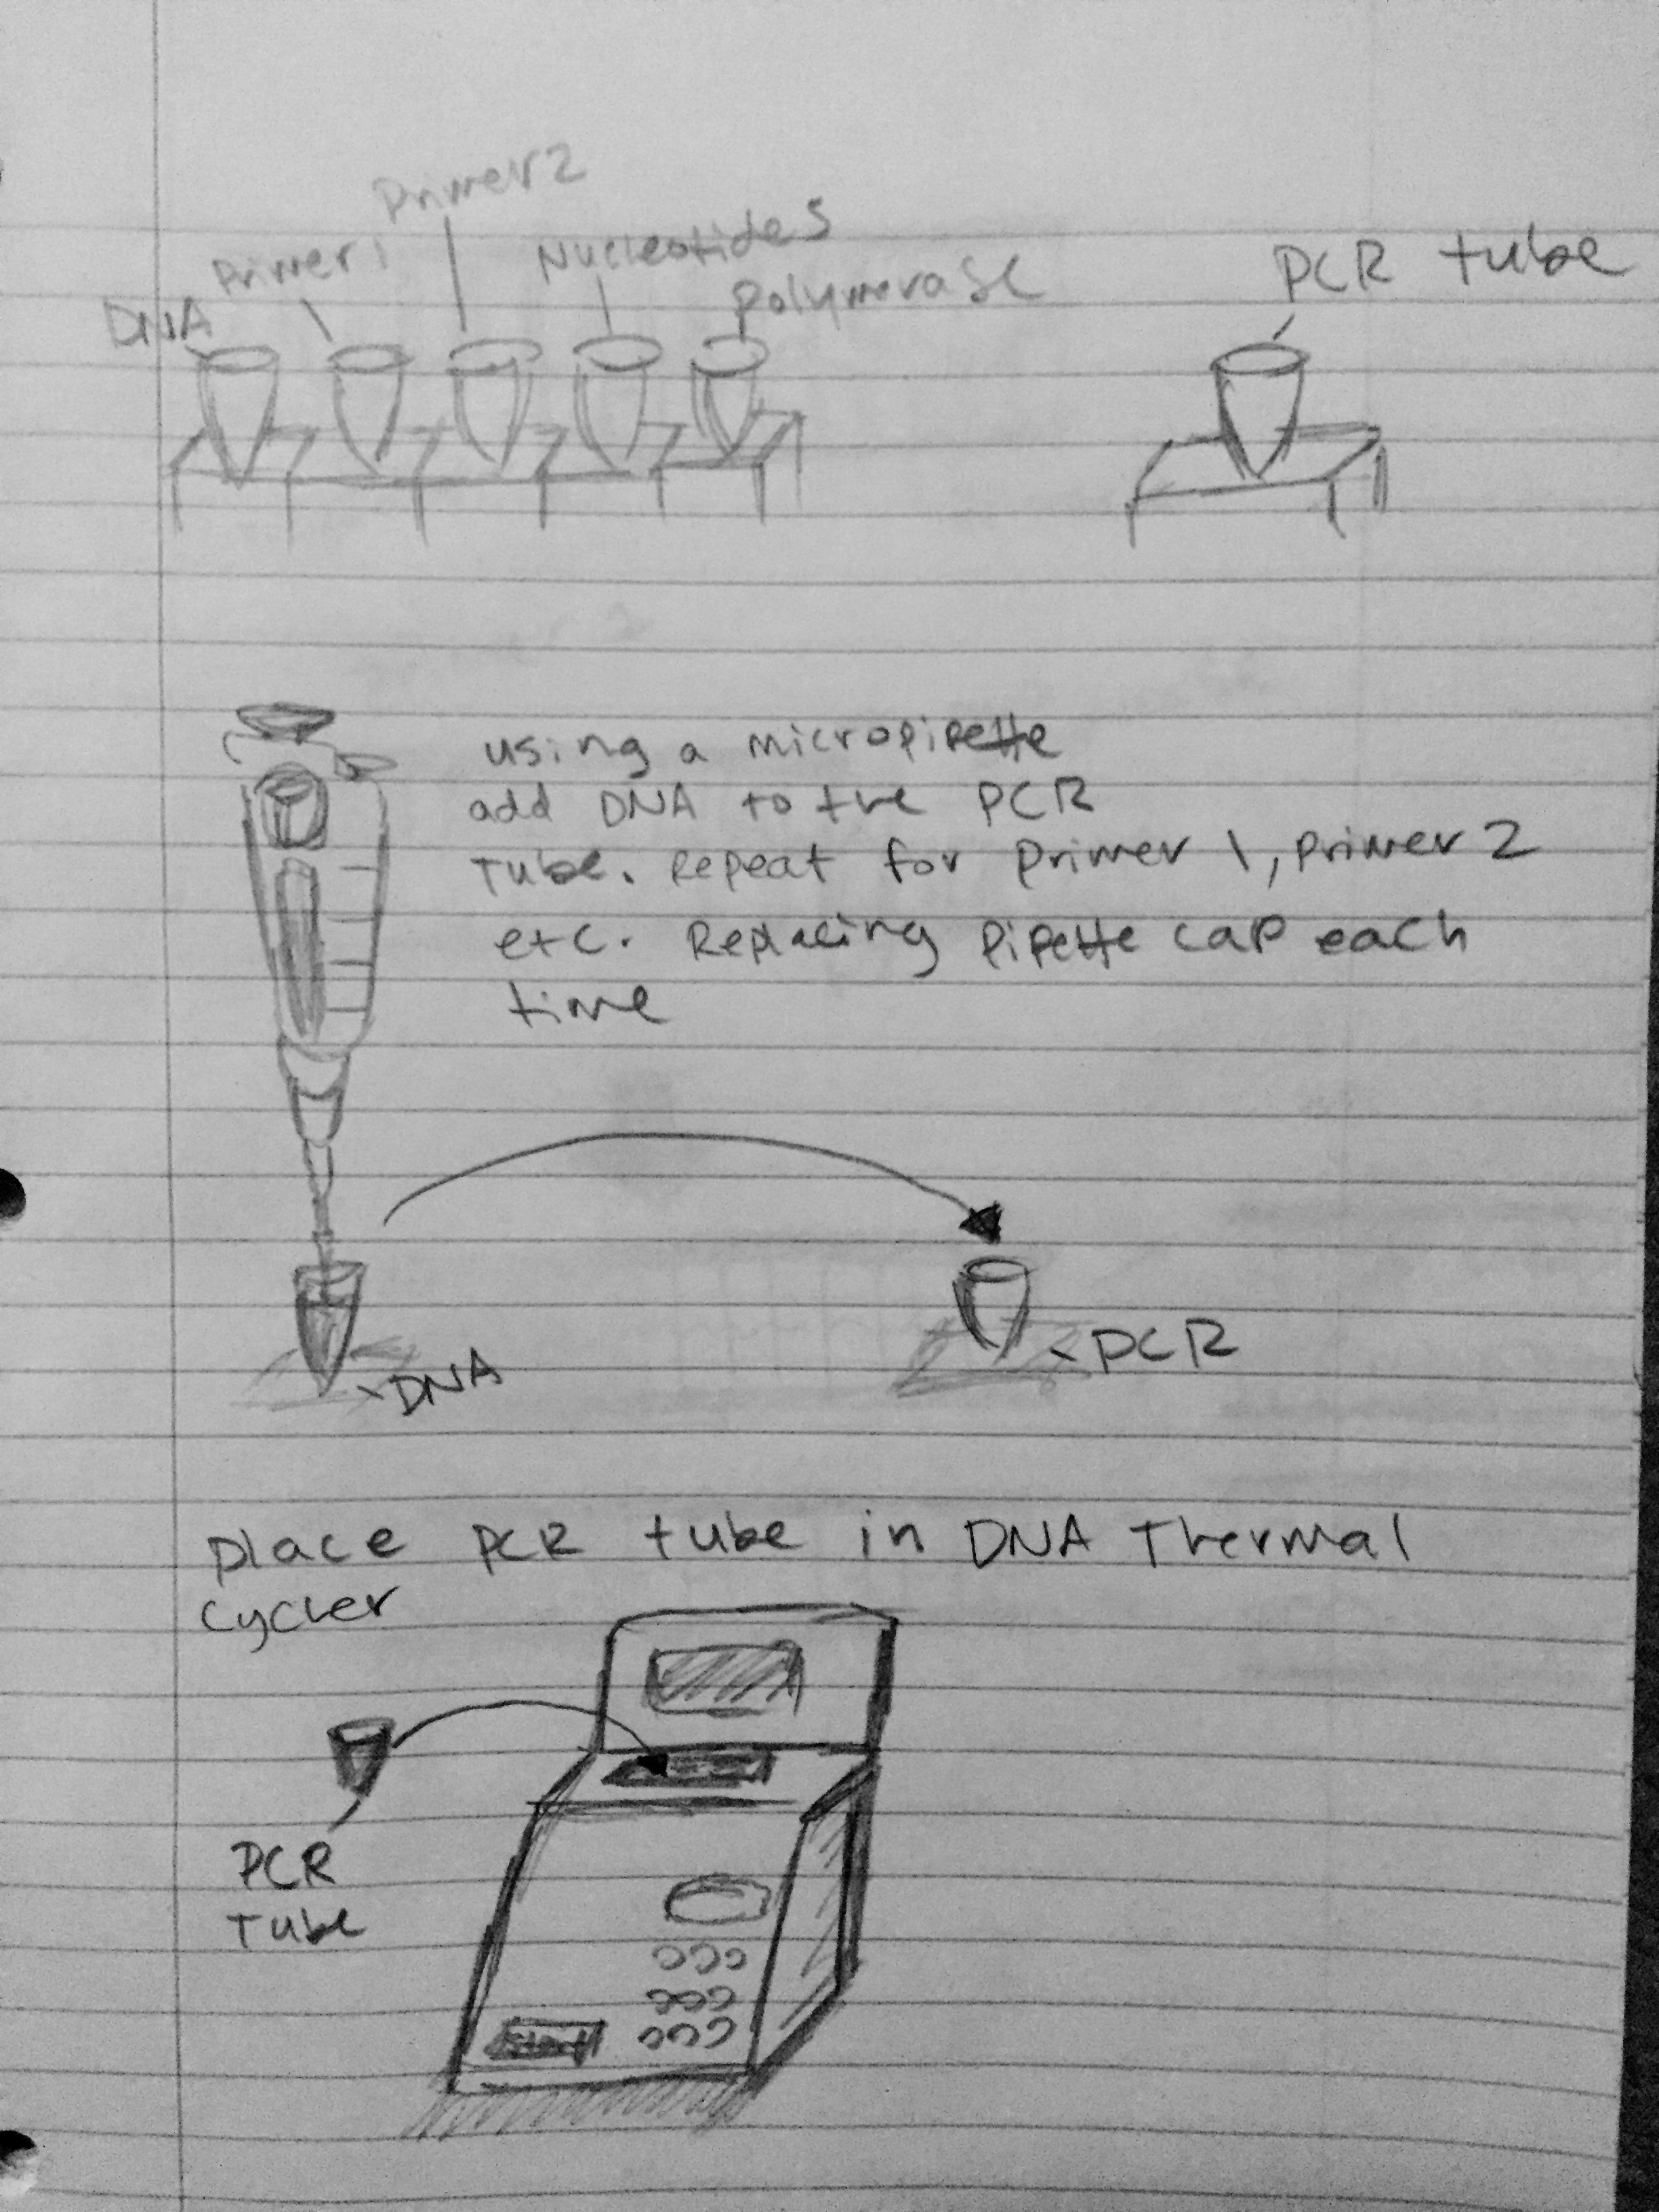 Primer 2
Primer 1
Nucleotides
DNA
Polymerase
PCR tube
using a micropipette
add DNA to the PCR
Tube. Repeat for Primer 1, primer 2
etc. Replacing pipette cap each
time
DNA
PCR
place PCR tube in DNA Thermal
cycler
PCR
Tube
Start